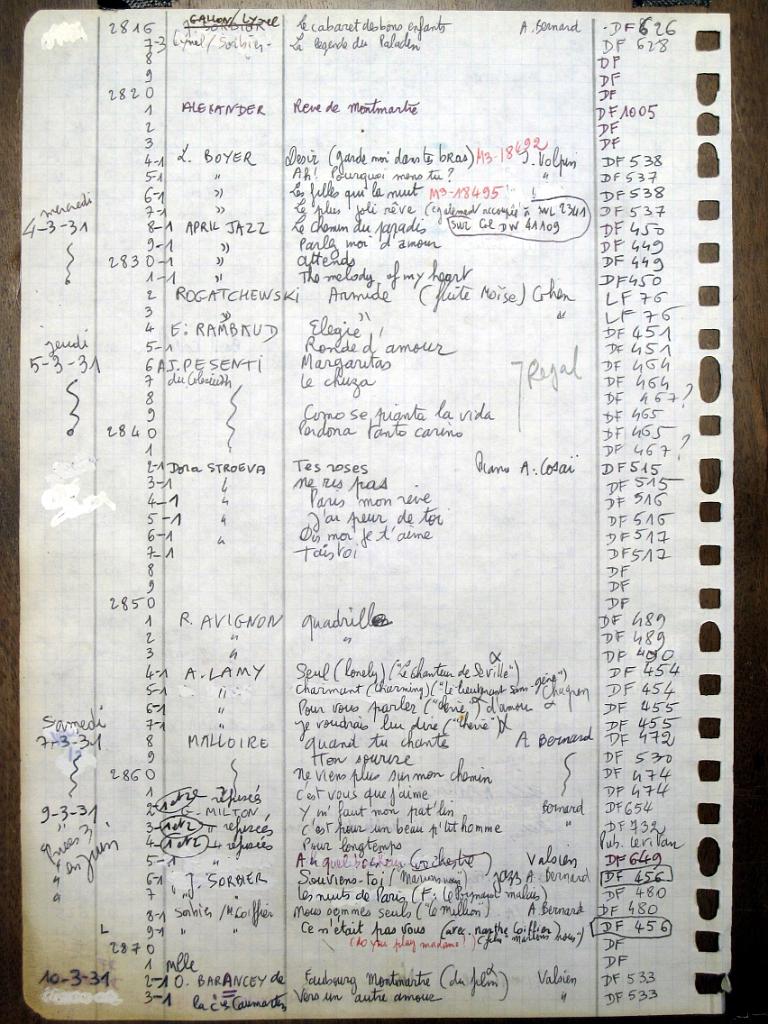 2816 GALLON/Lynel Le cabaret des bons enfants A. Bernard DF 626
7-3 Lynel/Sorbier La legende du Paladin DF 628
8 DF
9 DF
2820 DF
1 ALEXANDER Reve de Montmartre DF 1005
2 DF
3 DF
4-1 L. BOYER Desir (garde moi dans tes bras) M3-18492 J. Volpin DF 538
5-1 " Ah! Pourquoi mens tu? " DF 537
6-1 " Les filles qui la nuit M3-18495 DF 538
mercredi 7-1 " Le plus joli rêve DF 537
4-3-31 8-1 APRIL JAZZ Le chemin du paradis sur Col DW 41109 DF 450
9-1 " Parlez moi d'amour DF 449
2830-1 " attends DF 449
1-1 " The melody of my heart DF 450
2 ROGATCHEWSKI Armide (flûte Moïse) Cohen LF 76
3 " " " LF 76
4 E. RAMBAUD Elegie DF 451
jeudi 5-1 Ronde d'amour DF 451
5-3-31 6 A J. PESENTI Margaritas Regal DF 464
7 du Coliseum le chuza DF 464
8 DF 467?
9 Como se pianta la vida DF 465
2840 Perdona Tanto carino DF 465
1 DF 467?
2-1 Dora STROEVA Tes roses Piano A. Cosaï DF 515
3-1 " ne ris pas DF 515
4-1 " Paris mon rêve DF 516
5-1 " J'ai peur de toi DF 516
6-1 " Dis moi je t'aime DF 517
7-1 Tais toi DF 517
8 DF
9 DF
2850 DF
1 R. AVIGNON quadrille DF 489
2 " " DF 489
3 " DF 490
4-1 A. LAMY Seul (lonely) ("Le chanteur de Séville") DF 454
5-1 " Charmant (charming) ("le lieutenant sans-gêne") Chagnon DF 454
6-1 " Pour vous parler d'amour DF 455
samedi 7-1 " je voudrais lui dire ("chérie") DF 455
7-3-31 8 MALLOIRE quand tu chante A Bernard DF 472
9 Ton sourire DF 530
2860 ne viens plus sur mon chemin DF 474
1 c'est vous que j'aime DF 474
9-3-31 2 1 et 2 refusés G. MILTON Y m'faut mon pat'lin Bernard DF 654
" 3 1 et 2 " refusés c'est pour un beau p'tit homme " DF 732
Prises 3 en juin 4 1 et 2 " refusés Pour longtemps Pub. Levitan
" 5-1 " (orchestre) Valsien DF 649
" 6-1 J. SORBIER Souviens-toi jazz A. Bernard DF 456
" 7 " les nuits de Paris DF 480
8-1 Sorbier/M. Coiffier Nous sommes seuls ("le million") A Bernard DF 480
L 9-1 " " Ce n'était pas vous (avec Marthe Coiffier) DF 456
2870 (do you play madame?) DF
1 Mlle DF
10-3-31 2-1 O. BARANCEY de Faubourg Montmartre (du film) Valsien DF 533
3-1 la Cie Caumartin Vers un autre amour " DF 533